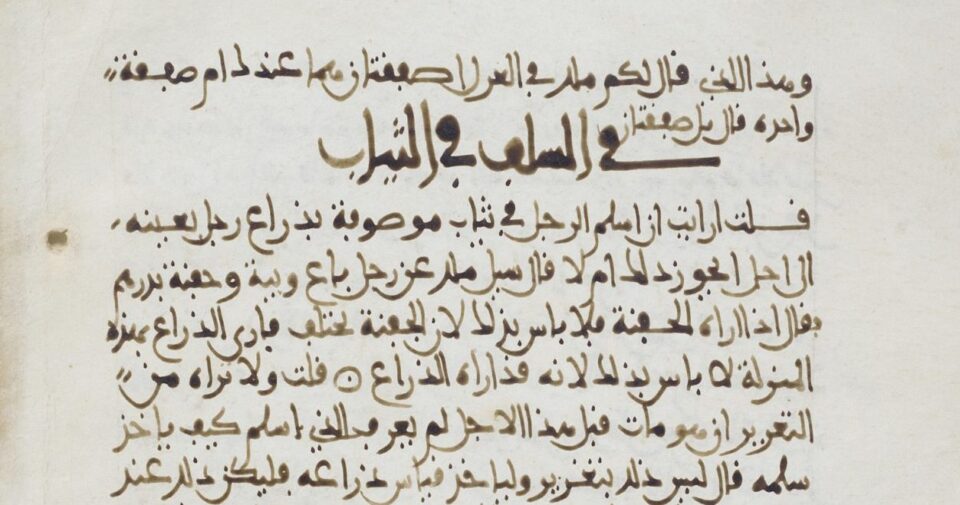 وهذا الذي قال لكم ملك في العر لا صفقتان هما عند ذا ام صفقة
واحدة قال بل صفقتان
في السلف في الثياب
قلت ارايت ان اسلم الرجل في ثياب موصوفة بذراع رجل بعينه
الى اجل ايجوز ذلك ام لا قال سيل ملك عن رجل باع ويبة وحفنة بدرهم
فقال اذا اراه الحفنة فلا باس بذلك لان الحفنة تختلف فارى الذراع بهذه
المنزلة لا باس بذلك لانه قد اراه الذراع ⊙ قلت ولا تراه من
التغرير ان هو مات قبل هذا الاجل لم يعرف الذي اسلم كيف ياخذ
سلمه قال ليس ذلك بتغرير وليا خذ قياس ذراعه فليكن ذلك عند